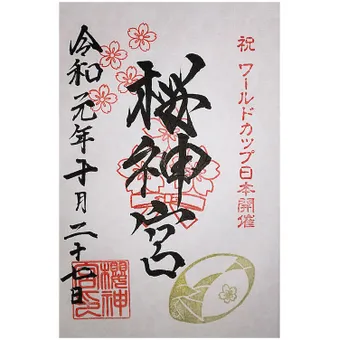 祝 ワールドカップ日本開催
桜神宮
令和元年十月二十七日
櫻神宮印